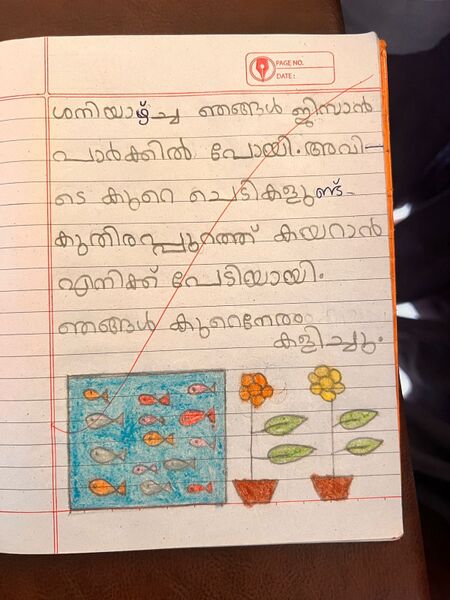 PAGE NO.
DATE:
ശനിയാഴ്ച്ച ഞങ്ങൾ ജിബാൻ
പാർക്കിൽ പോയി. അവി-
ടെ കുറെ ചെടികളുണ്ട്-
കുതിരപ്പുറത്ത് കയറാൻ
എനിക്ക് പേടിയായി.
ഞങ്ങൾ കുറെനേരം
കളിച്ചു.